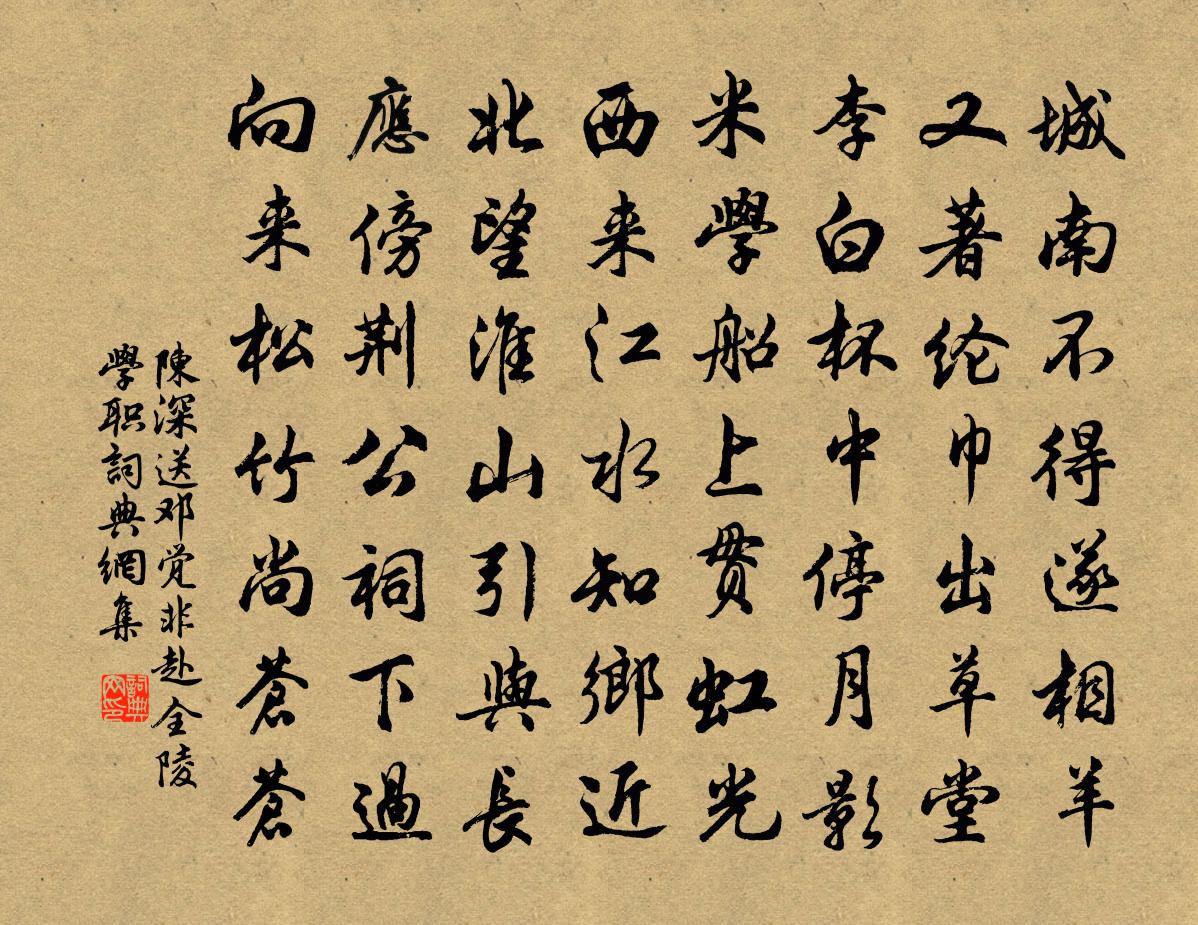 城南不得遂相羊
又著纶巾出草堂
李白杯中停月影
米學船上贯虹光
西来江水知鄉近
北望淮山引與長
應傍荆公祠下過
向来松竹尚蒼蒼
陳深送邓觉非赴全陵
學职詞典網集
詞典網印